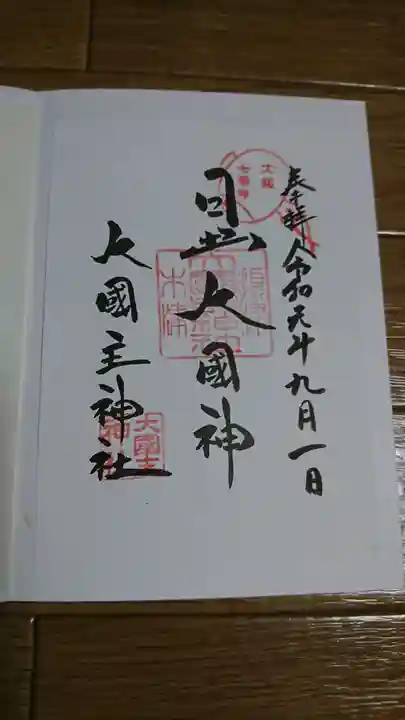 奉拝
令和元年九月一日
大阪
七福神
日出大國神
大國主神社